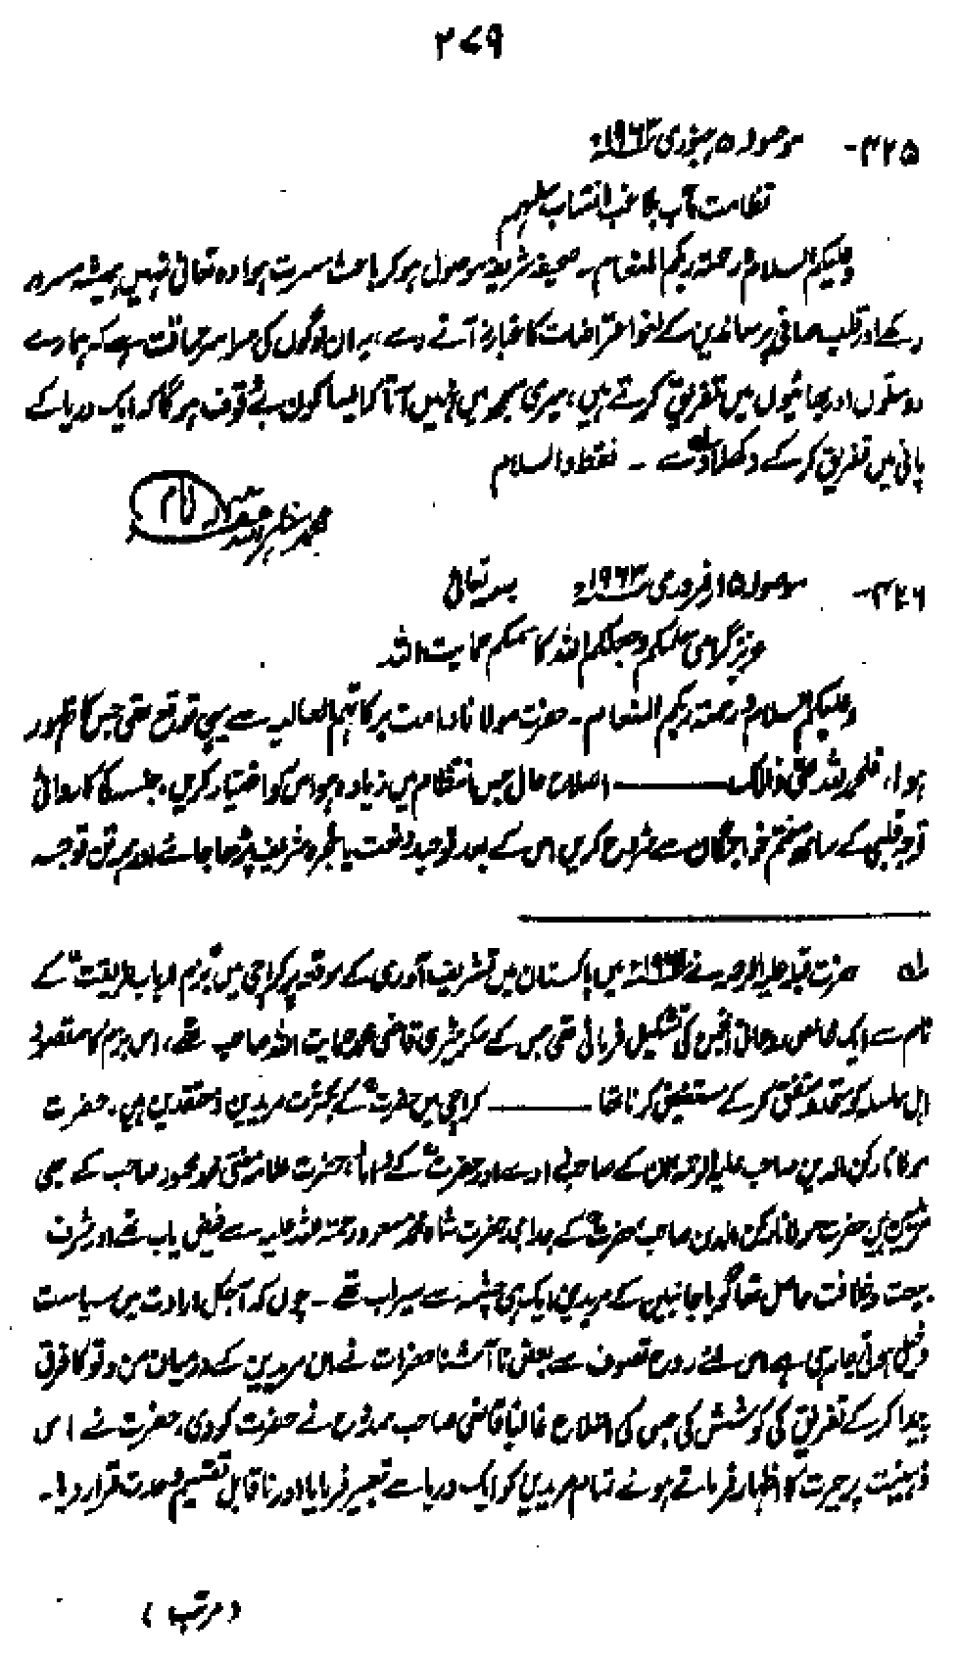 ۲۷۹
۴۲۵- موصولہ ۵ جنوری ۱۹۶۳ء
نظامت مآب بلاغت انتساب سلہم
وعلیکم السلام ورحمۃ ربکم المنعام۔ صحیفہ شریفہ موصول ہو کر باعث مسرت ہوا وہ تعالیٰ تمہیں ہمیشہ مسرور
رکھے اور قلب صافی پر معاندین کے لغو اعتراضات کا غبار نہ آنے دے، یہ ان لوگوں کی سراسر حماقت ہے کہ ہمارے
دوستوں اور بھائیوں میں تفریق کرتے ہیں، میری سمجھ میں نہیں آتا کہ ایسا کون بے وقوف ہوگا کہ ایک دریا کے
پانی میں تفریق کر کے دکھلا دے۔ فقط والسلام
محمد مظہر اللہ
۴۲۶- موصولہ ۱۵ فروری ۱۹۶۳ء بسمہ تعالیٰ
عزیز گرامی سلمکم وجعلکم اللہ کاسمکم حمایت اللہ
وعلیکم السلام ورحمۃ ربکم المنعام۔ حضرت مولانا دامت برکاتہم العالیہ سے یہی توقع تھی جس کا ظہور
ہوا، فلحمد للہ علیٰ ذالک ——— اصلاح حال جس انتظام میں زیادہ ہو اس کو اختیار کریں، جلسہ کی کاروائی
توجہ قلبی کے ساتھ ختم خواجگان سے شروع کریں اس کے بعد توحید و نعت یا شجرہ شریف پڑھا جائے اور ہمہ تن توجہ
لہ حضرت قبلہ علیہ الرحمہ نے میں پاکستان میں تشریف آوری کے موقعہ پر کراچی میں "بزم ارباب طریقت" کے
نام سے ایک خالص روحانی انجمن کی تشکیل فرمائی تھی جس کے سکریٹری قاضی محمد حمایت اللہ صاحب تھے، اس بزم کا مقصد
اہل سلسلہ کو متحد و متفق کر کے مستفیض کرنا تھا ——— کراچی میں حضرت کے بکثرت مریدین و معتقدین ہیں، حضرت
مولانا رکن الدین صاحب علیہ الرحمہ ان کے صاحبزادے اور حضرت کے داماد حضرت علامہ مفتی محمد محمود صاحب کے بھی
مریدین ہیں حضرت مولانا رکن الدین صاحب حضرت کے جد امجد حضرت شاہ محمد مسعود رحمۃ اللہ علیہ سے فیض یاب تھے اور شرف
بیعت و خلافت حاصل تھا گویا جانبین کے مریدین ایک ہی چشمہ سے سیراب تھے۔ چوں کہ آجکل ارادت میں سیاست
دخیل ہوتی جا رہی ہے اس لئے روح تصوف سے بعض نا آشنا حضرات نے ان مریدین کے درمیان من و تو کا فرق
پیدا کر کے تفریق کی کوشش کی جس کی اطلاع غالباً قاضی صاحب ممدوح نے حضرت کو دی، حضرت نے اس
ذہنیت پر حیرت کا اظہار فرماتے ہوئے تمام مریدین کو ایک دریا سے تعبیر فرمایا اور ناقابل تقسیم وحدت قرار دیا۔
(مرتب)